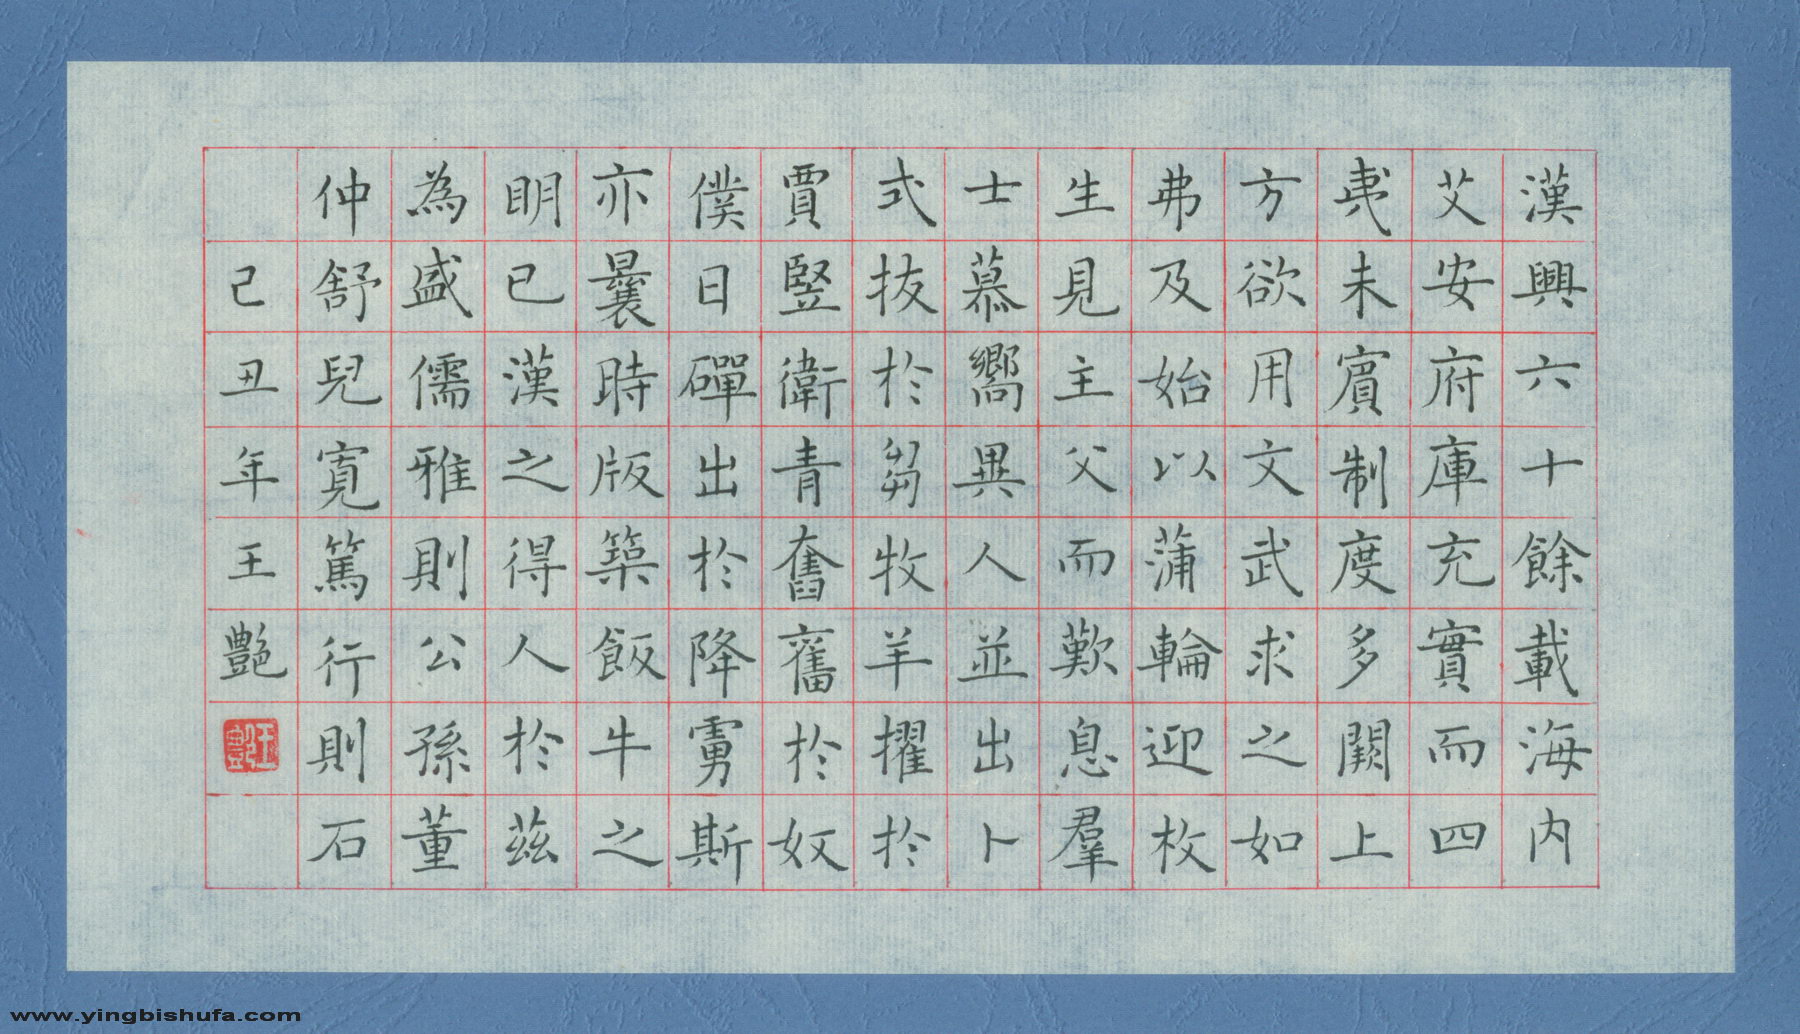 漢興六十餘載海內
艾安府庫充實而四
夷未賓制度多闕上
方欲用文武求之如
弗及始以蒲輪迎枚
生見主父而歎息羣
士慕嚮異人並出卜
式抜於芻牧羊擢於
賈豎衛青奮舊於奴
僕日磾出於降虜斯
亦曩時版築飯牛之
明已漢之得人於茲
為盛儒雅則公孫董
仲舒兒寬篤行則石
己丑年王艷
www.yingbishufa.com